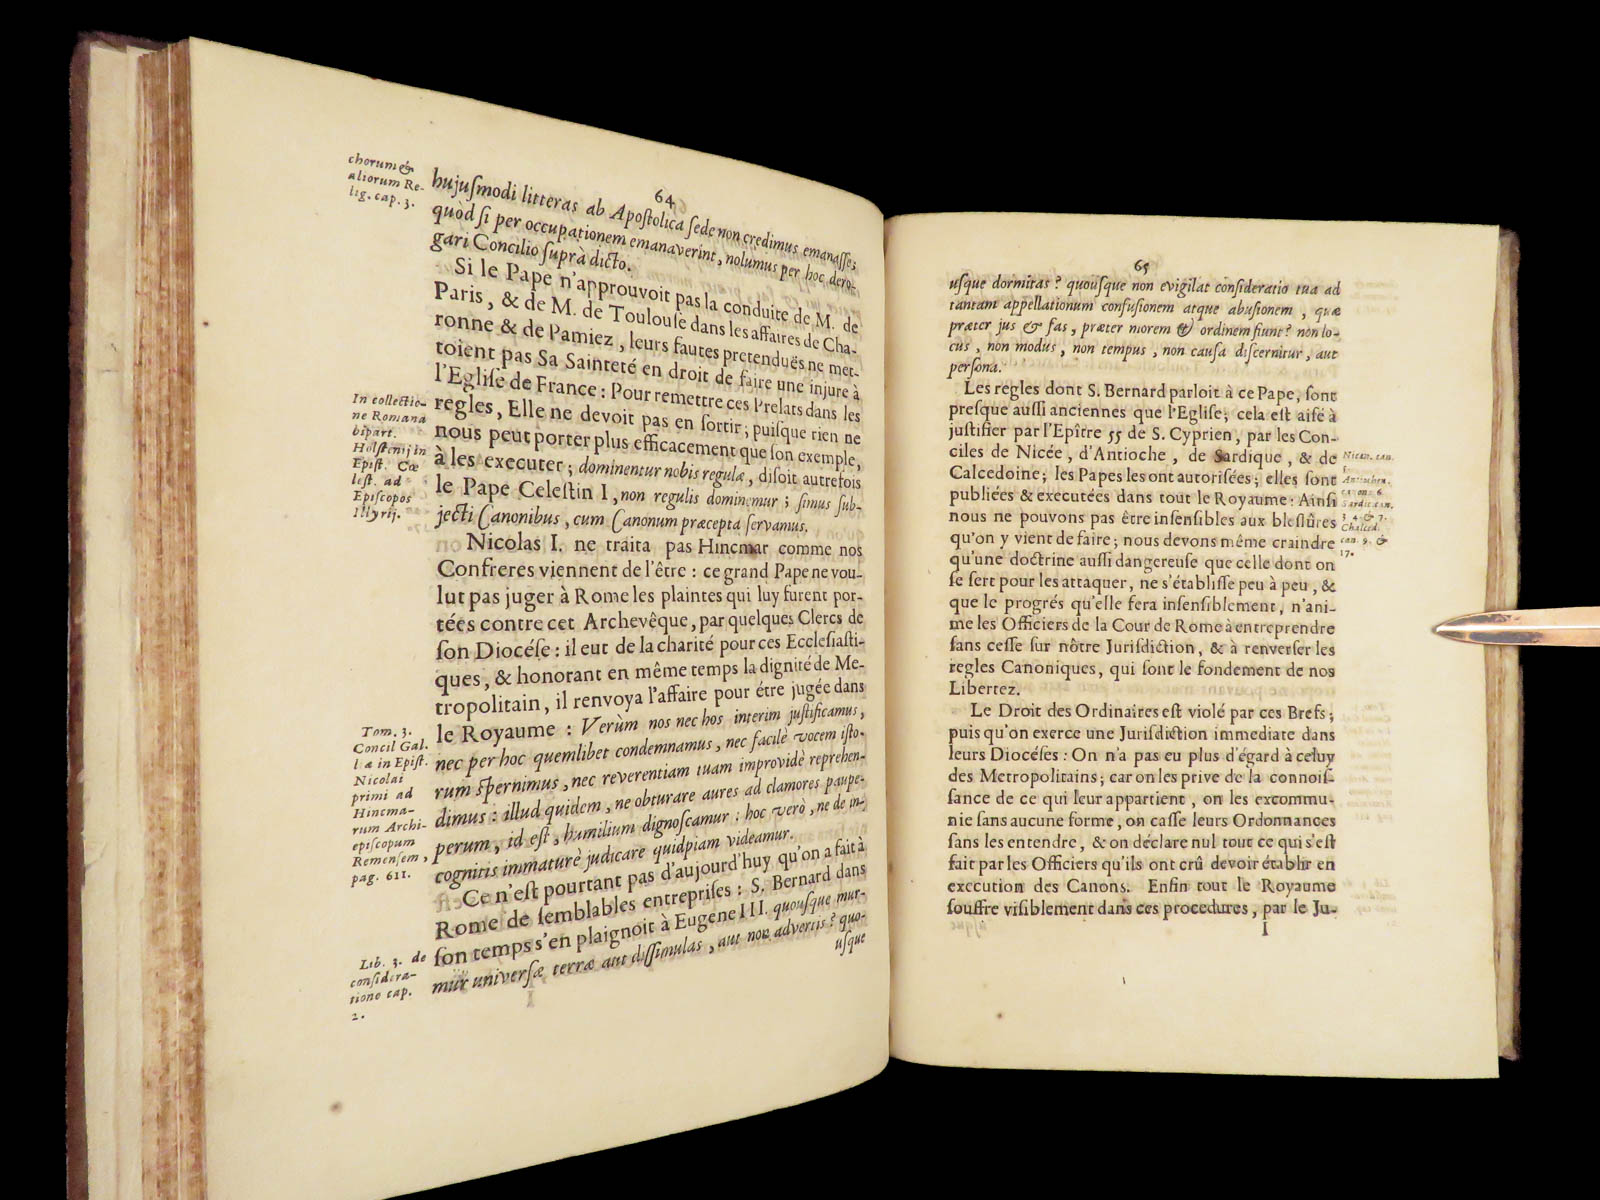 64
chorum &
aliorum Re-
lig. cap. 3.
hujuſmodi litteras ab Apoſtolica ſede non credimus emanaſſe;
quòd ſi per occupationem emanaverint, nolumus per hoc dero-
gari Concilio ſuprà dicto.
Si le Pape n'approuvoit pas la conduite de M. de
Paris, & de M. de Toulouſe dans les affaires de Cha-
ronne & de Pamiez, leurs fautes pretenduës ne met-
toient pas Sa Sainteté en droit de faire une injure à
l'Egliſe de France: Pour remettre ces Prelats dans les
regles, Elle ne devoit pas en ſortir; puiſque rien ne
nous peut porter plus efficacement que ſon exemple,
à les executer; dominentur nobis regulæ, diſoit autrefois
le Pape Celeſtin I, non regulis dominemur; ſimus ſub-
jecti Canonibus, cum Canonum præcepta ſervamus.
In collectio-
ne Romana
bipart.
Holſtenij in
Epiſt. Cæ
leſt. ad
Epiſcopos
Illyrij.
Nicolas I. ne traita pas Hincmar comme nos
Confreres viennent de l'être: ce grand Pape ne vou-
lut pas juger à Rome les plaintes qui luy furent por-
tées contre cet Archevêque, par quelques Clercs de
ſon Diocéſe: il eut de la charité pour ces Eccleſiaſti-
ques, & honorant en même temps la dignité de Me-
tropolitain, il renvoya l'affaire pour étre jugée dans
le Royaume: Verùm nos nec hos interim juſtificamus,
nec per hoc quemlibet condemnamus, nec facilè vocem iſto-
rum ſpernimus, nec reverentiam tuam improvidè reprehen-
dimus: illud quidem, ne obturare aures ad clamores paupe-
perum, id eſt, humilium dignoſcamur: hoc verò, ne de in-
cognitis immaturè judicare quidpiam videamur.
Tom. 3.
Concil Gal.
liæ in Epiſt.
Nicolai
primi ad
Hincma-
rum Archi-
epiſcopum
Remenſem,
pag. 611.
Ce n'eſt pourtant pas d'aujourd'huy qu'on a fait à
Rome de ſemblables entrepriſes: S. Bernard dans
ſon temps s'en plaignoit à Eugene III. quouſque mur-
mur univerſæ terræ aut diſſimulas, aut non advertis? quo-
uſque
Lib. 3. de
conſidera-
tione cap.
2.
65
uſque dormitas? quouſque non evigilat conſideratio tua ad
tantam appellationum confuſionem atque abuſionem, quæ
præter jus & fas, præter morem & ordinem fiunt? non lo-
cus, non modus, non tempus, non cauſa diſcernitur, aut
perſona.
Les regles dont S. Bernard parloit à ce Pape, ſont
preſque auſſi anciennes que l'Egliſe; cela eſt aiſé à
juſtifier par l'Epître 55 de S. Cyprien, par les Con-
ciles de Nicée, d'Antioche, de Sardique, & de
Calcedoine; les Papes les ont autoriſées; elles ſont
publiées & executées dans tout le Royaume: Ainſi
nous ne pouvons pas être inſenſibles aux bleſſûres
qu'on y vient de faire; nous devons même craindre
qu'une doctrine auſſi dangereuſe que celle dont on
ſe ſert pour les attaquer, ne s'établiſſe peu à peu, &
que le progrés qu'elle fera inſenſiblement, n'ani-
me les Officiers de la Cour de Rome à entreprendre
ſans ceſſe ſur nôtre Juriſdiction, & à renverſer les
regles Canoniques, qui ſont le fondement de nos
Libertez.
Nicæn. can.
5.
Antiochen.
canon. 6.
Sardic. can.
3 4 & 7.
Chalced.
can. 9. &
17.
Le Droit des Ordinaires eſt violé par ces Brefs;
puis qu'on exerce une Juriſdiction immediate dans
leurs Diocéſes: On n'a pas eu plus d'égard à celuy
des Metropolitains; car on les prive de la connoiſ-
ſance de ce qui leur appartient, on les excommu-
nie ſans aucune forme, on caſſe leurs Ordonnances
ſans les entendre, & on déclare nul tout ce qui s'eſt
fait par les Officiers qu'ils ont crû devoir établir en
execution des Canons. Enfin tout le Royaume
ſouffre viſiblement dans ces procedures, par le Ju-
I